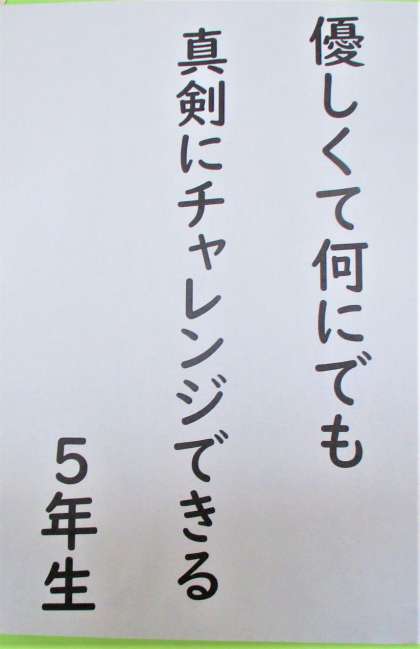 優しくて何にでも
真剣にチャレンジできる
５年生